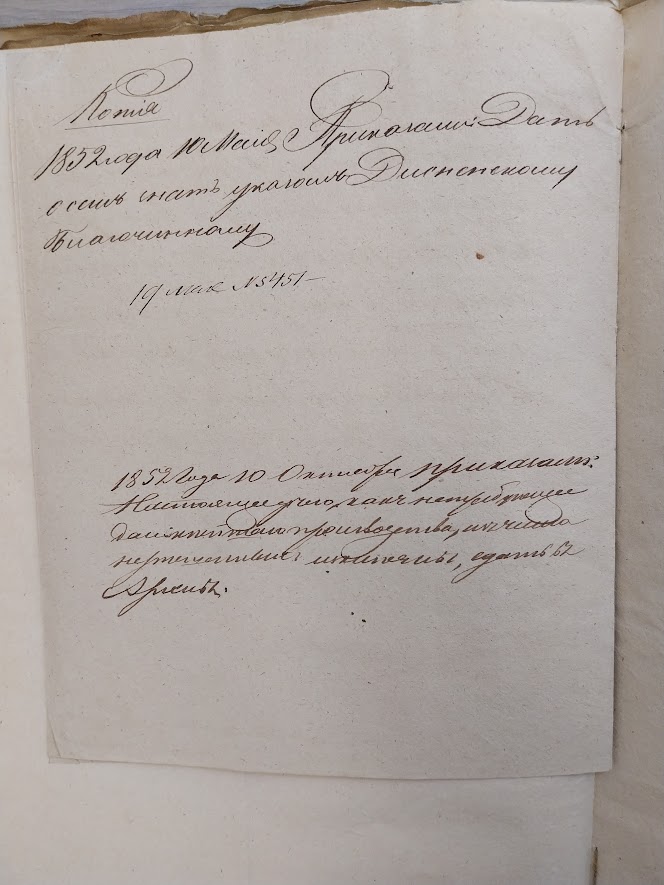 Копія
1852 года 10 Маія Приказали: Дать
о семъ знать указомъ Дисненскому
Благочинному
19 мая №5451
1852 Года 10 Октября приказали:
Настоящее дело, какъ нетребующее
дальнейшаго производства, изъ числа
нерешенныхъ исключивъ, сдать въ
Архивъ.